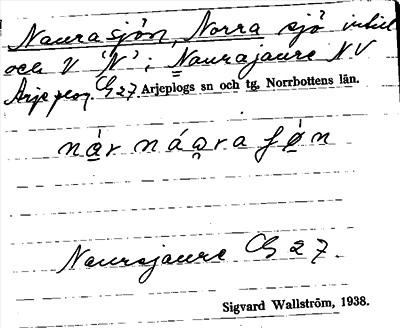 Naurasjön, Norra sjö inlid
och V "N"; Naurajaure NV
Arjeplog. G 27 Arjeplogs sn och tg, Norrbottens län.
nạ́r náa̭ra fọ́n
Naurajaure G 27.
Sigvard Wallström, 1938.